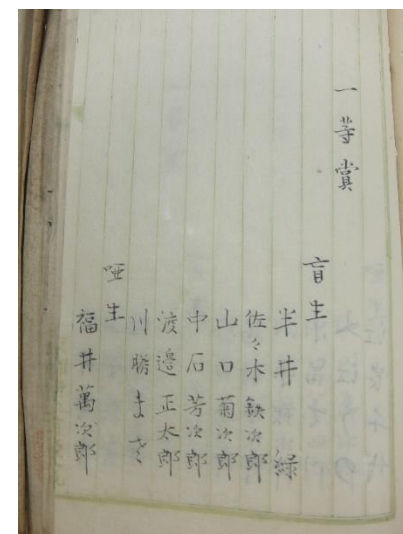 一等賞
盲生
半井緑
佐々木鉄次郎
山口菊次郎
中石芳次郎
渡邉正太郎
川勝まさ
唖生
福井萬次郎